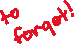 to
forget!